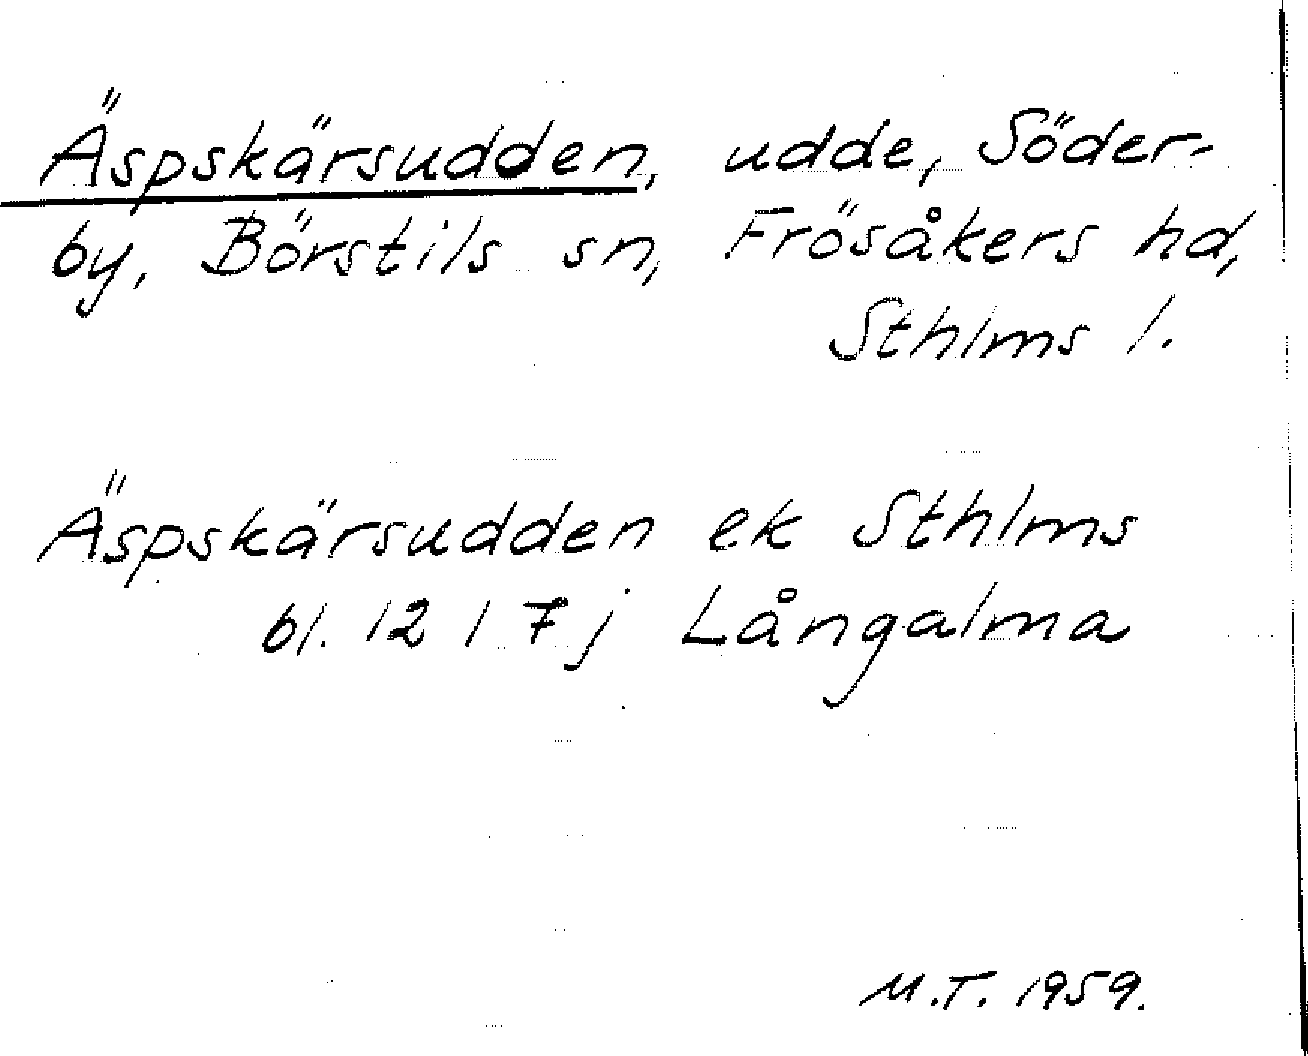 Äspskärsudden, udde, Söder-
by, Börstils sn, Frösåkers hd,
Sthlms l.
Äspskärsudden ek Sthlms
bl. 12 I 7 j Långalma
M.T. 1959.